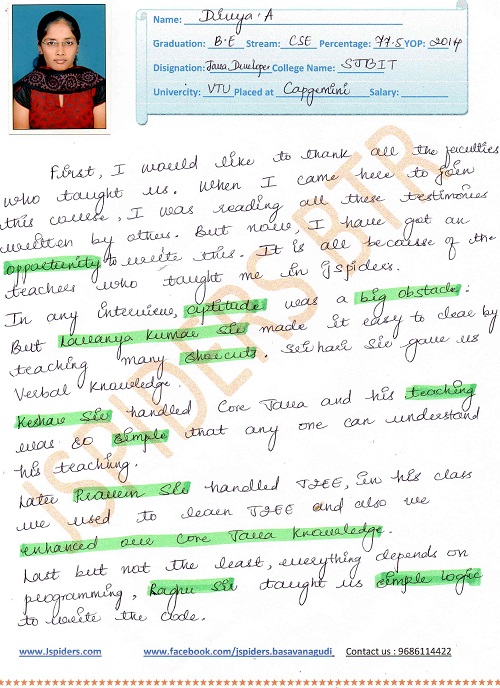 Name: Divya.A
Graduation: B.E Stream: CSE Percentage: 77.5 YOP: 2014
Disignation: Java Developer College Name: SJBIT
Univercity: VTU Placed at Capgemini Salary:
First, I would like to thank all the faculties
who taught us. When I came here to join
this course, I was reading all these testimonies
written by others. But now, I have got an
opportunity to write this. It is all because of the
teachers who taught me in jspiders.
In any interview, aptitude was a big obstacle.
But Lavanya Kumar Sir made it easy to clear by
teaching many shortcuts. Srihari Sir gave us
Verbal Knowledge.
Keshav Sir handled Core Java and his teaching
was so simple that any one can understand
his teaching.
Later Praveen Sir handled J2EE, in his class
we used to learn J2EE and also we
enhanced our Core Java Knowledge.
Last but not the least, everything depends on
programming, Raghu Sir taught us simple logic
to write the code.
JSPIDERS BTR
www.Jspiders.com www.facebook.com/jspiders.basavanagudi Contact us : 9686114422